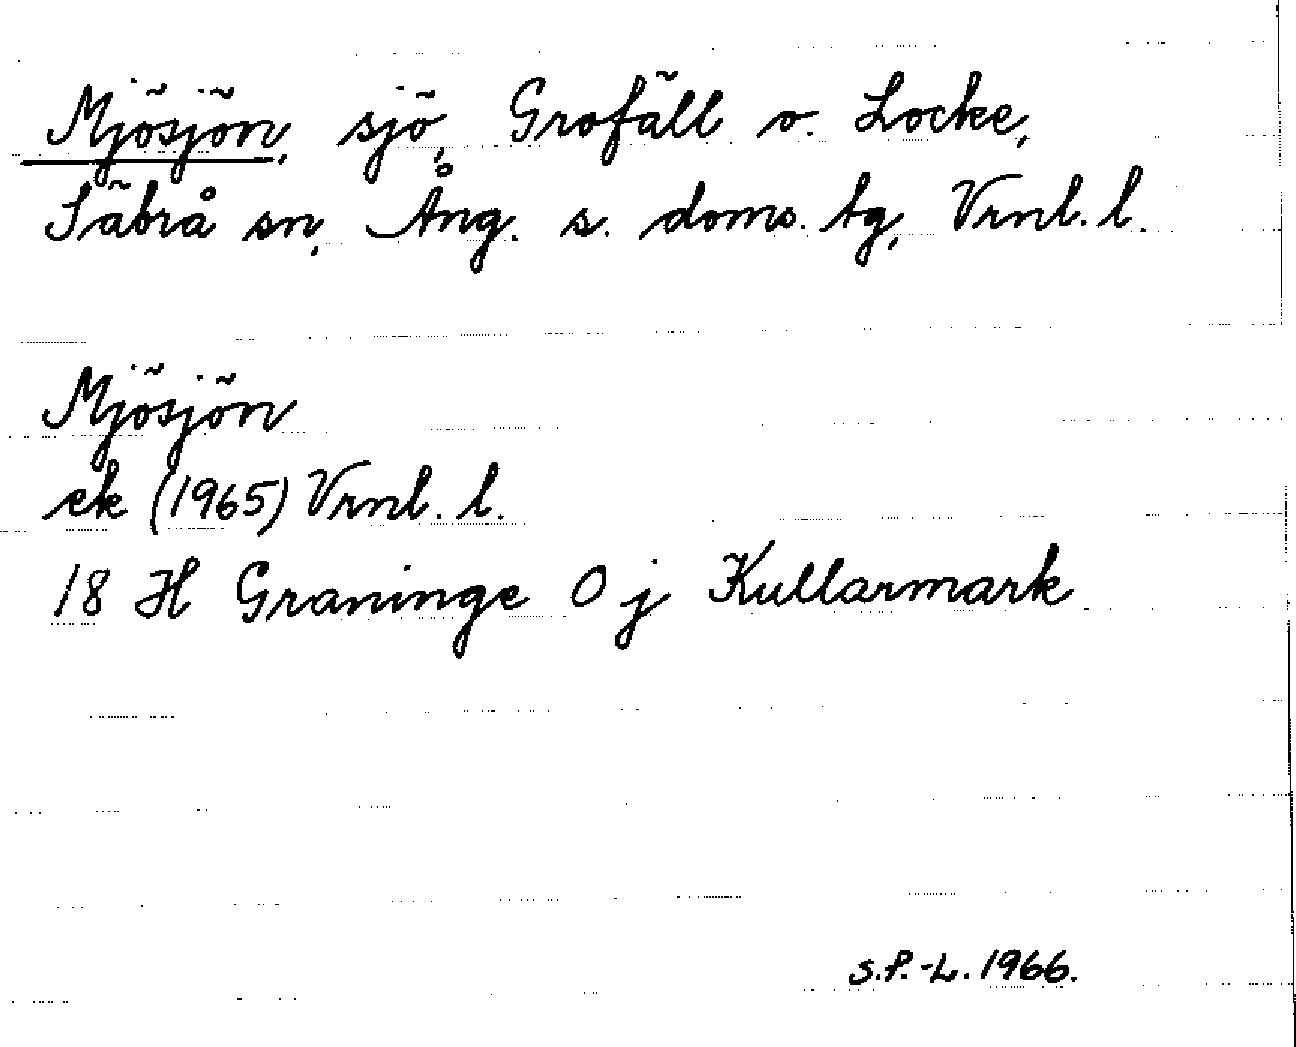 Mjösjön, sjö, Grofäll o. Locke,
Säbrå sn, Ång. s. doms. tg, Vrnl. l.
Mjösjön
ek (1965) Vrnl. l.
18 H Graninge O j Kullarmark
S.P.-L. 1966.